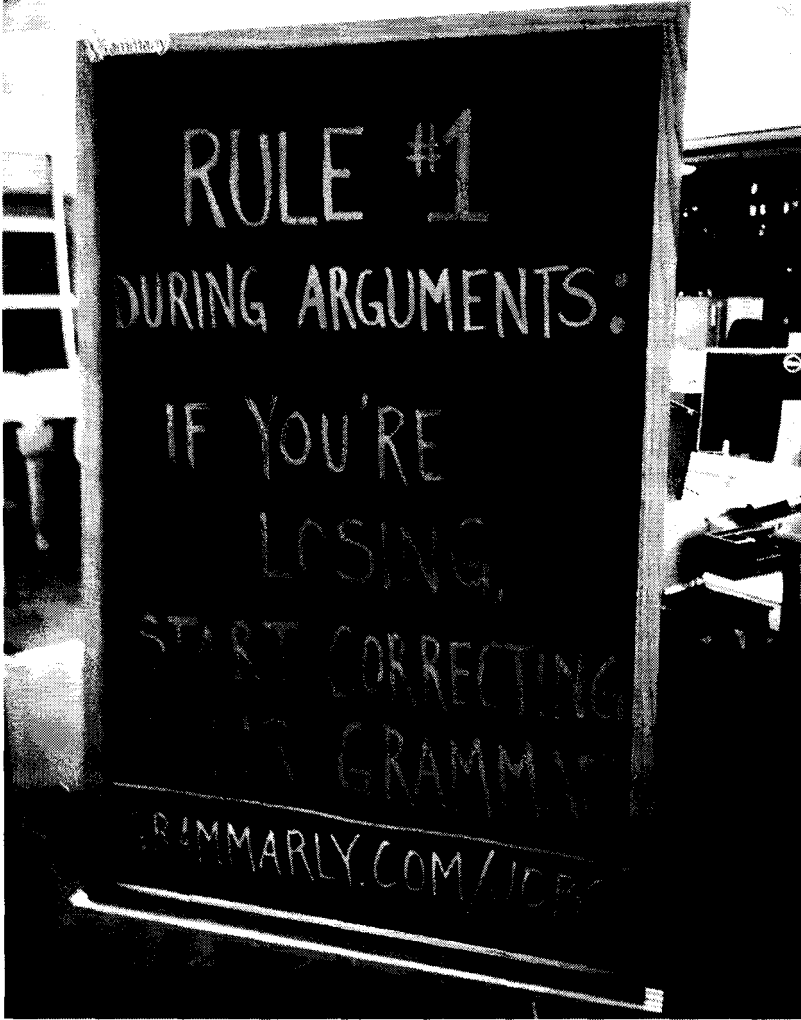 Grammarly
RULE #1
DURING ARGUMENTS:
IF YOU'RE
LOSING,
START CORRECTING
GRAMMAR
GRAMMARLY.COM/JOBS